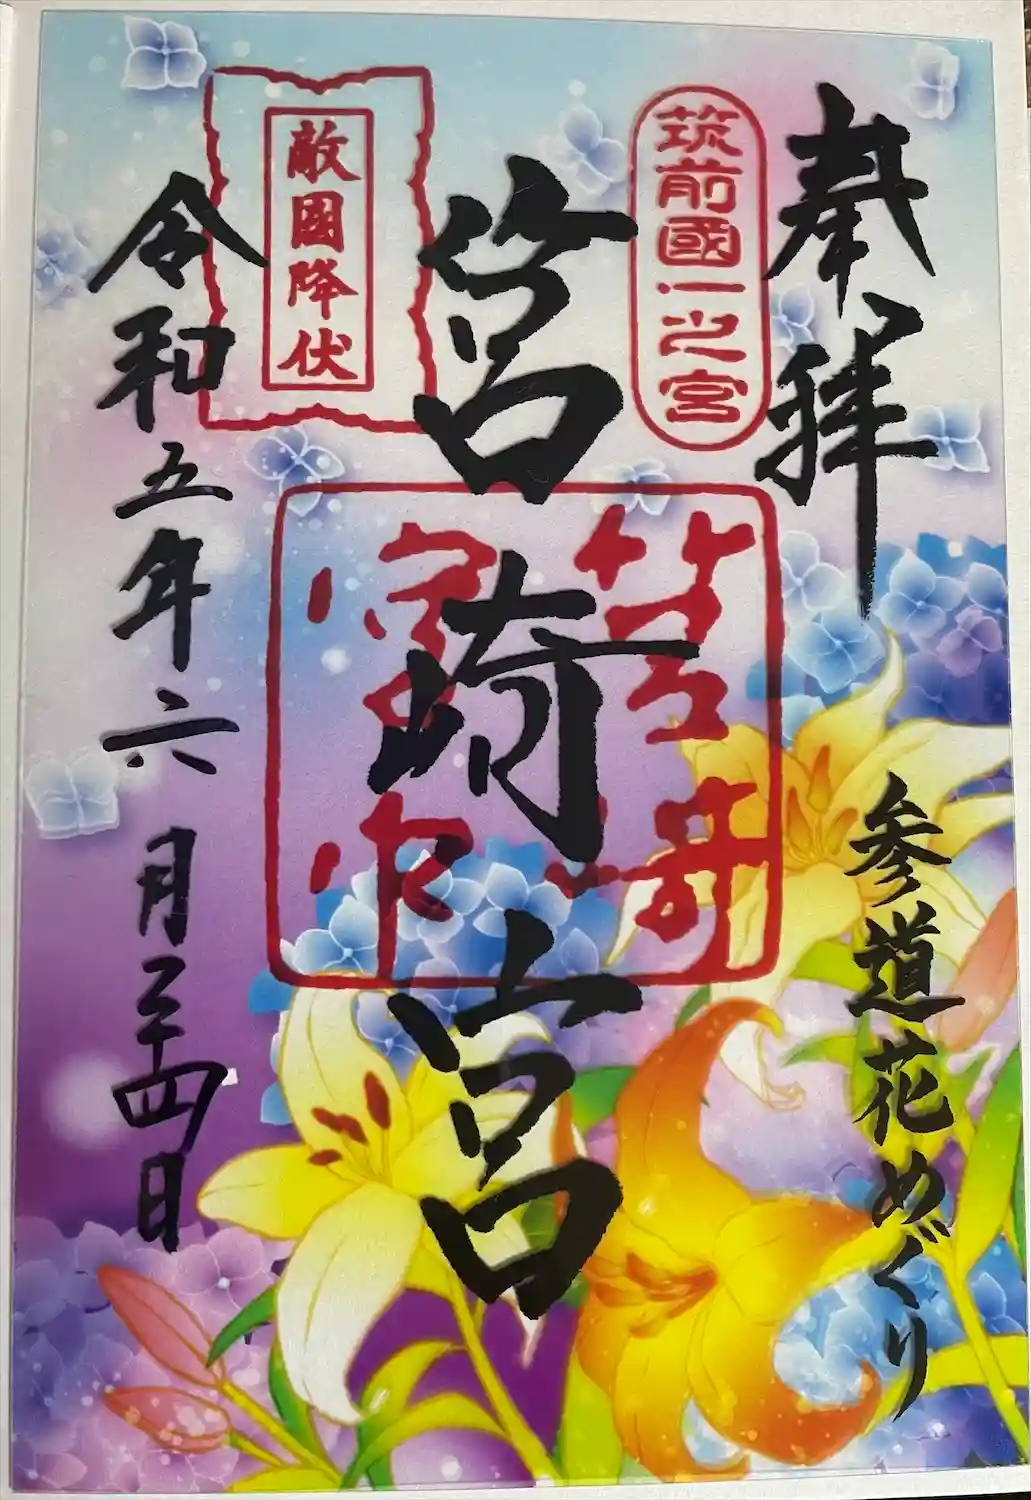 奉拝
参道花めぐり
筑前國一之宮
筥崎宮
敵國降伏
令和五年六月二十四日